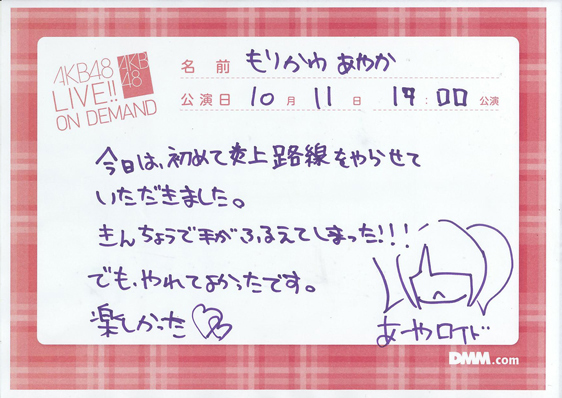 AKB48
LIVE!!
ON DEMAND
AKB
48
名前 もりかわ あやか
公演日 10月11日 17:00 公演
今日は、初めて炎上路線をやらせて
いただきました。
きんちょうで手がふるえてしまった!!!
でも、やれてよかったです。
楽しかった
あーやロイド
DMM.com